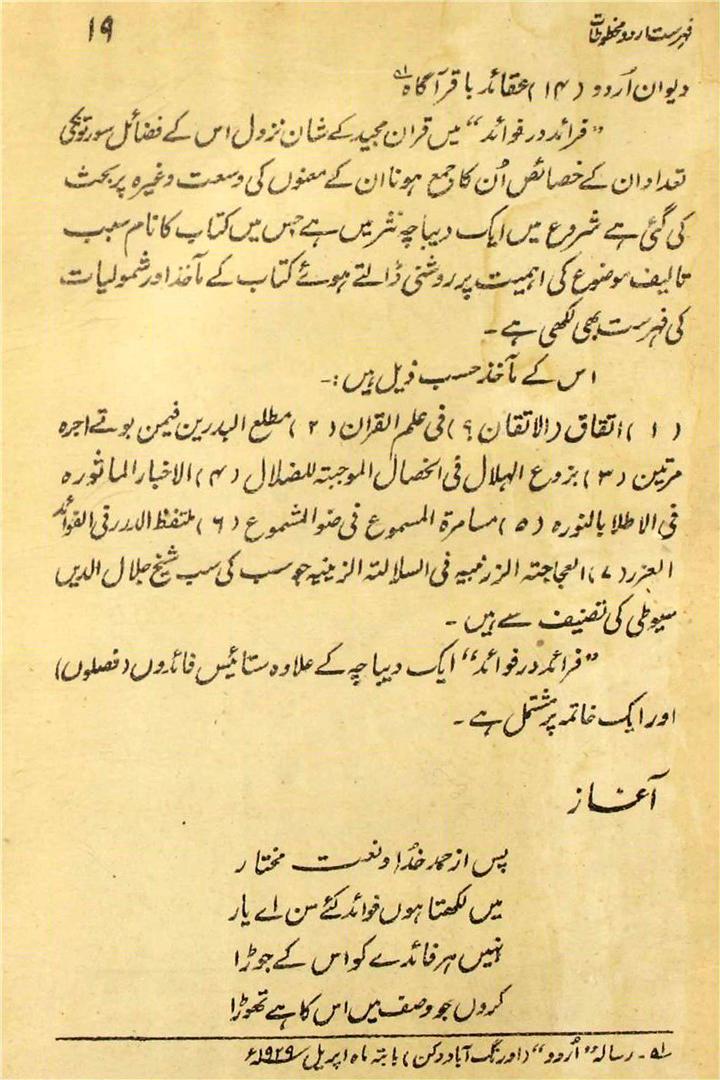 فہرست اردو مخطوطات
۱۹
دیوان اُردو (۱۴) عقائد باقر آگاہ ؎۱
”فرائد در فوائد“ میں قران مجید کے شان نزول اس کے فضائل سورتوںکی
تعداد ان کے خصائص اُن کا جمع ہونا ان کے معنوں کی وسعت وغیرہ پر بحث
کی گئی ہے شروع میں ایک دیباچہ نثر میں ہے جس میں کتاب کا نام سبب
تالیف موضوع کی اہمیت پر روشنی ڈالتے ہوئے کتاب کے مآخذ اور شمولیات
کی فہرست بھی لکھی ہے ۔
اس کے مآخذ حسب ذیل ہیں :۔
(۱) اتفاق (الاتقان ؟) فی علم القران (۲) مطلع البدرین فیمن یوتے اجرہ
مرتین (۳) بزوع الہلال فی الخصال الموجبتہ للضلال (۴) الاخبار الماثورہ
فی الاطلا بالنورہ (۵) مسامرۃ المسموع فی ضوالشموع (۶) ملتفظ الدرر فی الفوائد
العزر (۷) العجاجتہ الزرنبیہ فی السلالتہ الزینیہ جو سب کی سب شیخ جلال الدین
سیوطی کی تصنیف سے ہیں ۔
”فرائد در فوائد“ ایک دیباچہ کے علاوہ ستائیس فائدوں (فصلوں)
اور ایک خاتمہ پر مشتمل ہے ۔
آغاز
پس از حمد خدا و نعت مختار
میں لکھتا ہوں فوائد کئے سن اے یار
نہیں ہر فائدے کو اس کے جوڑا
کروں جو وصف میں اس کا ہے تھوڑا
؎۱ ۔ رسالہ ”اُردو“ (اورنگ آباد دکن) بابتہ ماہ اپریل ۱۹۲۹ء